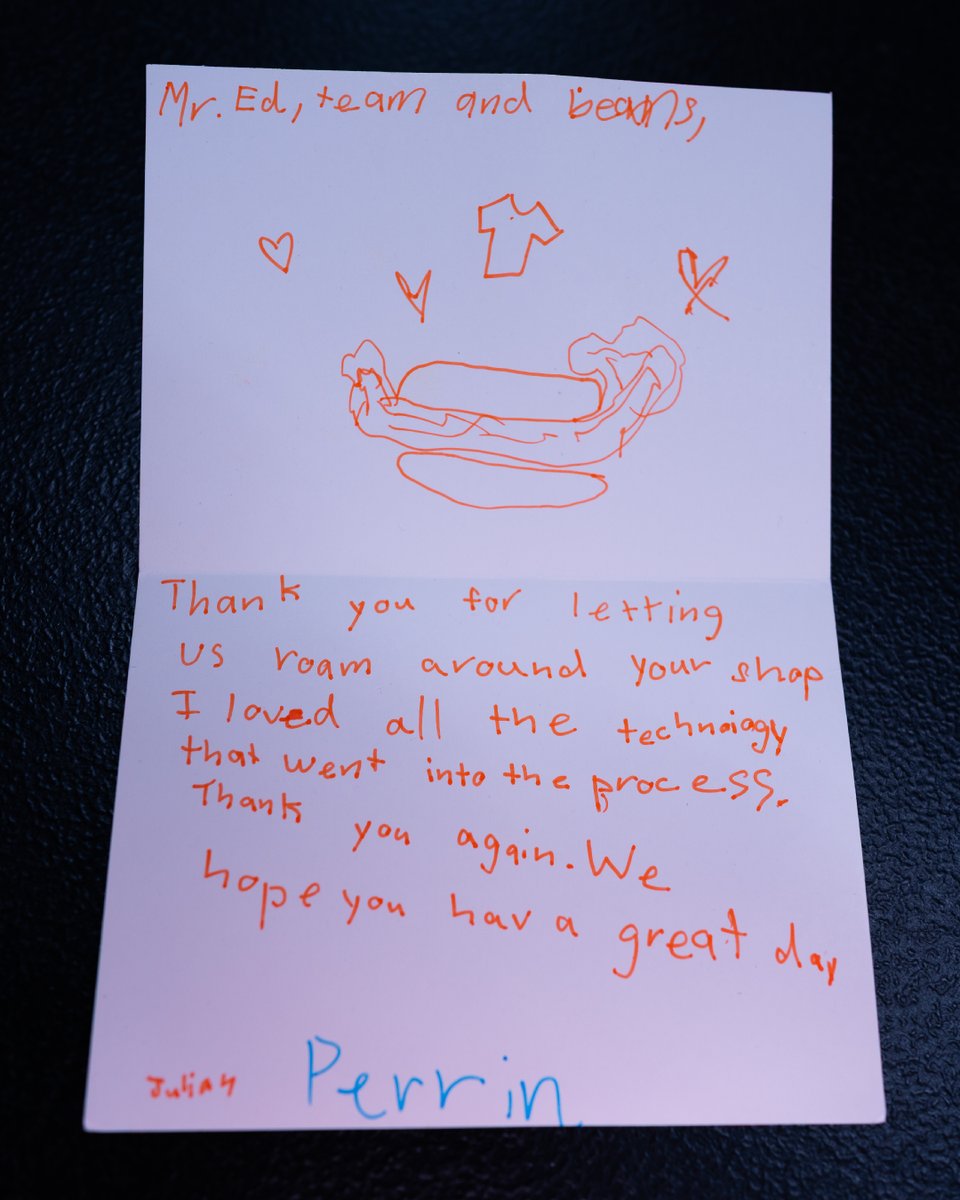 Mr. Ed, team and beans,
Thank you for letting
us roam around your shop
I loved all the technology
that went into the process.
Thank you again. We
hope you hav a great day
Julian Perrin